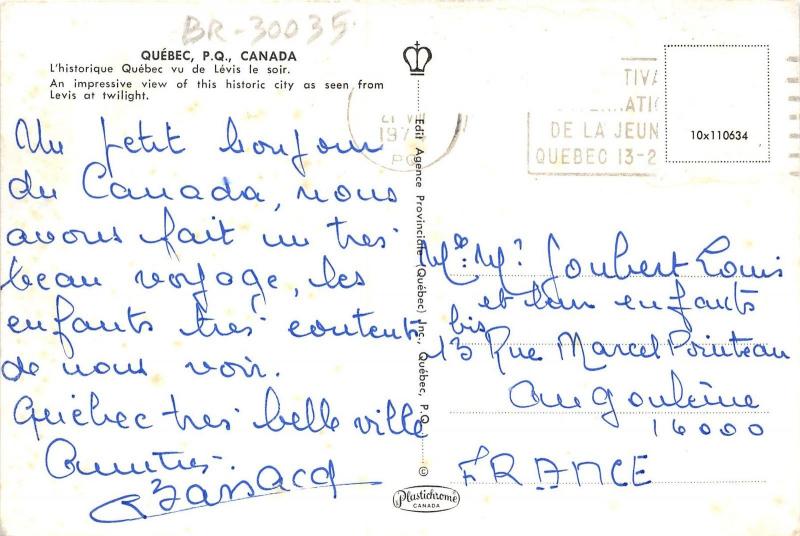 BR-30035
QUÉBEC, P.Q., CANADA
L'historique Québec vu de Lévis le soir.
An impressive view of this historic city as seen from
Levis at twilight.
Un petit bonjour
du Canada, nous
avons fait un tres
beau voyage, les
enfants tres contents
de nous voir.
Québec tres belle ville
Amitiés.
Edit Agence Provinciale (Québec) Inc., Québec, P.Q.
©
Plastichrome
CANADA
21 VII
197
PQ
TIVA
NATIO
DE LA JEUN
QUEBEC 13-2
10x110634
Joubert Louis
et leurs enfants
bis
13 Rue Marcel Pointeau
Angoulême
16000
FRANCE